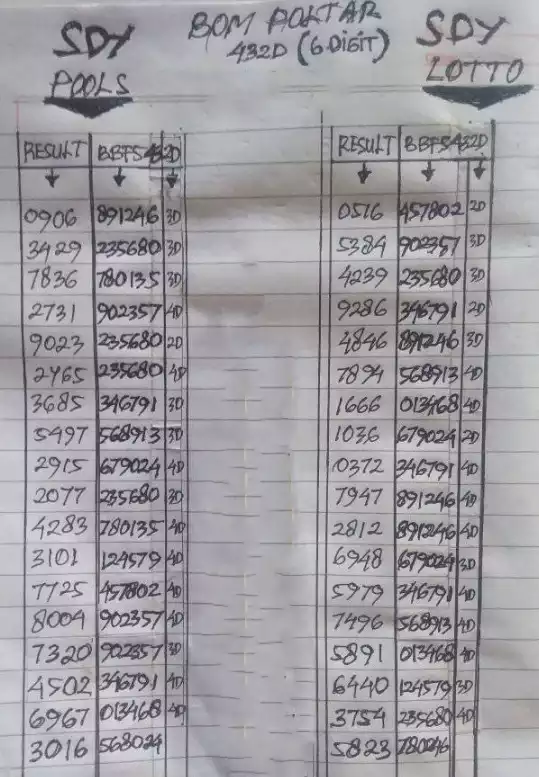 SDY BOM POLTAR SDY
432D (6 DIGIT)
POOLS LOTTO
RESULT BBFS 432D RESULT BBFS 432D
0906 891246 3D 0516 457802 2D
3429 235680 3D 5384 902357 3D
7836 780135 3D 4239 235680 3D
2731 902357 4D 9286 346791 2D
9023 235680 2D 4846 891246 3D
2465 235680 4D 7894 568913 4D
3685 346791 3D 1666 013468 4D
5497 568913 3D 1036 679024 2D
2915 679024 4D 0372 346791 4D
2077 235680 3D 7947 891246 4D
4283 780135 4D 2812 891246 4D
3101 124579 4D 6948 679024 3D
7725 457802 4D 5979 346791 4D
8004 902357 4D 7496 568913 4D
7320 902357 3D 5891 013468 4D
4502 346791 4D 6440 124579 3D
6967 013468 4D 3754 235680 4D
3016 568024 5823 780246